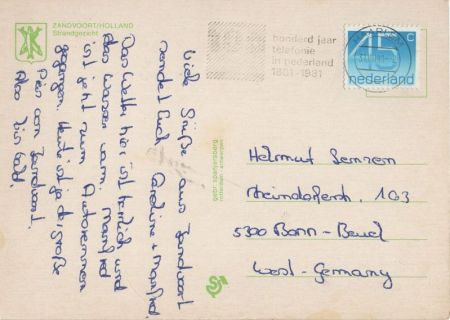 ZANDVOORT/HOLLAND
Strandgezicht
Viele Grüße aus Zandvoort
sendet Euch Caroline + Manfred.
Das Wetter hier ist herrlich und
das Wasser warm. Manfred
ist jetzt zum Autorennen
gegangen. Heute ist ja der große
Preis von Zandvoort.
Also bis bald.
gebr. spanjersberg
rotterdam antwerpen
honderd jaar
telefonie
in nederland
1881-1981
45 c
nederland
Helmut
103
5300 Bonn - Beuel
West - Germany